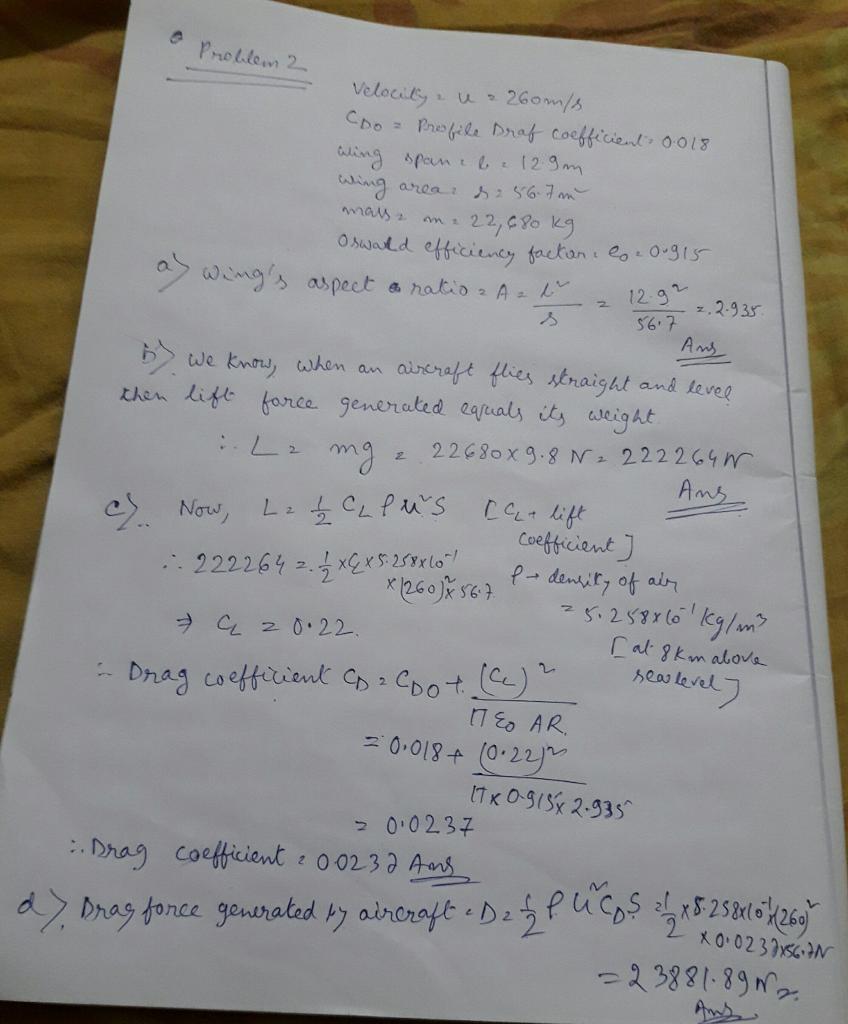 Problem 2
Velocity = u = 260m/s
CDO = Profile Draf coefficient = 0.018
Wing span = b = 12.9m
Wing area = s = 56.7m²
mass = m = 22,680 kg
Oswald efficiency factor = e₀ = 0.915
a) Wing's aspect ratio = A = b²/s = 12.9²/56.7 = 2.935
Ans
b) We know, when an aircraft flies straight and level
then lift force generated equals its weight.
∴ L = mg = 22680 x 9.8 N = 222264 N
Ans
c) Now, L = 1/2 CL ρ u² S [CL → lift
coefficient]
∴ 222264 = 1/2 x CL x 5.258x10⁻¹
x (260)² x 56.7
ρ → density of air
= 5.258x10⁻¹ kg/m³
[at 8km above
sea level]
⇒ CL = 0.22.
∴ Drag coefficient CD = CDO + (CL)²/(π ε₀ AR.)
= 0.018 + (0.22)²/(π x 0.915 x 2.935)
= 0.0237
∴ Drag coefficient = 0.0237 Ans
d) Drag force generated by aircraft = D = 1/2 ρ u² CD S = 1/2 x 5.258x10⁻¹ x (260)²
x 0.0237x56.7N
= 23881.89 N
Ans